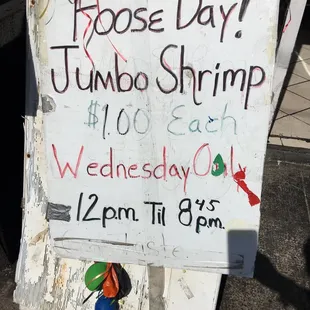 Hoose Day!
Jumbo Shrimp
$1.00 Each
Wednesday Only
12p.m. Til 8:45 p.m.